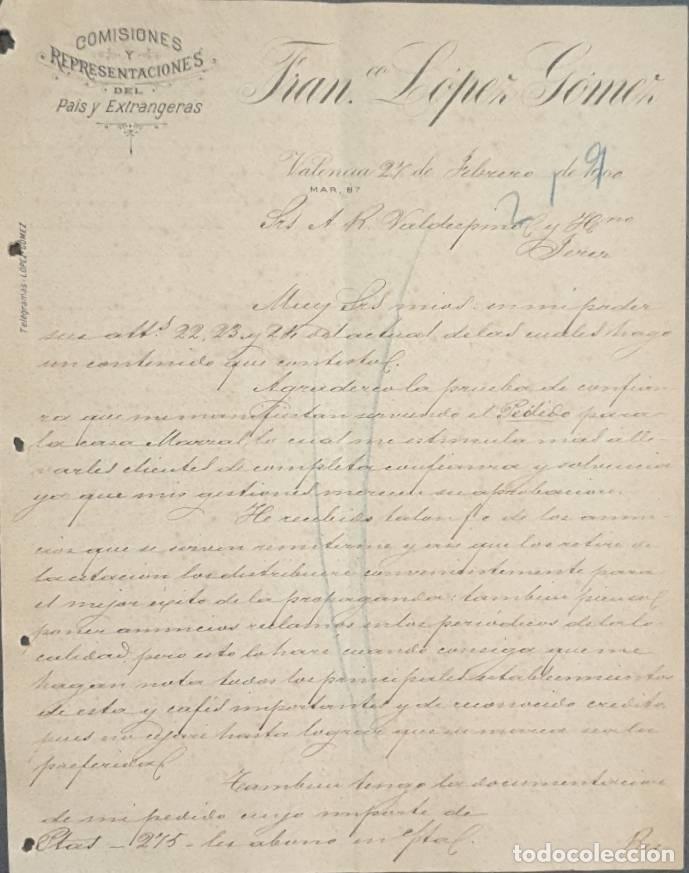 COMISIONES
Y
REPRESENTACIONES
DEL
Pais y Extrangeras
Fran.co López Gómez
Valencia 27 de Febrero de 1900
MAR, 87
Telegramas: LOPEZ GOMEZ
Srs A. R. Valdespino y Hno
Jerez
Muy Srs mios: en mi poder
sus atts 22, 23 y 24 del actual de las cuales hago
un contenido que contesto.
Agradezco la prueba de confian-
za que me manifiestan sirviendo el Pedido para
la casa lo cual me estimula mas a lle-
varles clientes de completa confianza y solvencia
ya que mis gestiones merecen su aprobacion.
He recibido talon f.c de los anun-
cios que se sirven remitirme y asi que los retire de
la estacion los distribuiré convenientemente para
el mejor exito de la propaganda: tambien pienso
poner anuncios reclamos en los periódicos de esta lo-
calidad, pero esto lo haré cuando consiga que me
hagan nota todos los principales establecimientos
de esta y cafés importantes y de reconocido credito
pues no dejaré hasta lograr que su marca sea la
preferida.
Tambien tengo la documentacion
de mi pedido cuyo importe de
Ptas - 275 - les abono en c/ta.
todocoleccion.net